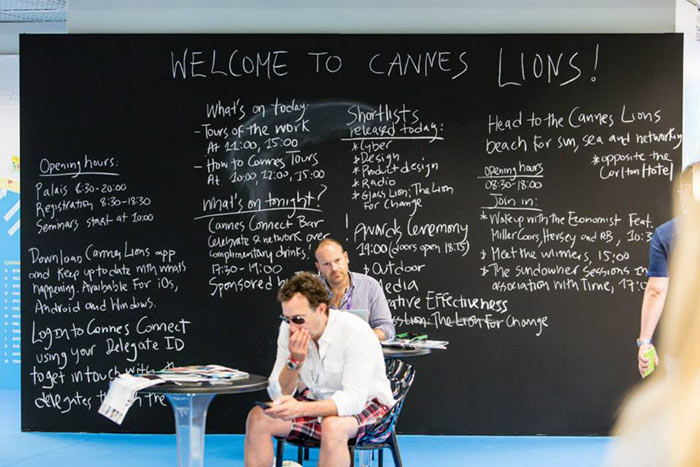 WELCOME TO CANNES LIONS!
Opening hours:
Palais 8:30-20:00
Registration 8:30-18:30
Seminars start at 10:00
Download Cannes Lions app
and keep up to date with whats
happening. Available for iOs,
Android and Windows.
Log in to Cannes Connect
using your Delegate ID
to get in touch with
delegates the
What's on today:
- Tours of the work
At 11:00, 15:00
- How to Cannes Tours
At 10:00, 12:00, 15:00
What's on tonight?
Cannes Connect Bar
Celebrate & network over
complimentary drinks
17:30-19:00
Sponsored
Shortlists
released today:
* Cyber
* Design
* Product design
* Radio
* Glass Lion: The Lion
For Change
Awards Ceremony
19:00 (doors open 18:15)
* Outdoor
Media
Creative Effectiveness
Glass Lion: The Lion For Change
Head to the Cannes Lions
beach for sun, sea and networking
* opposite the
Carlton Hotel
opening hours
08:30-18:30
Join in:
* Wake up with the Economist Feat.
Miller Coors, Hersey and RB, 10:3
* Meet the winners, 15:00
* The sundowner Sessions in
association with Time, 17: